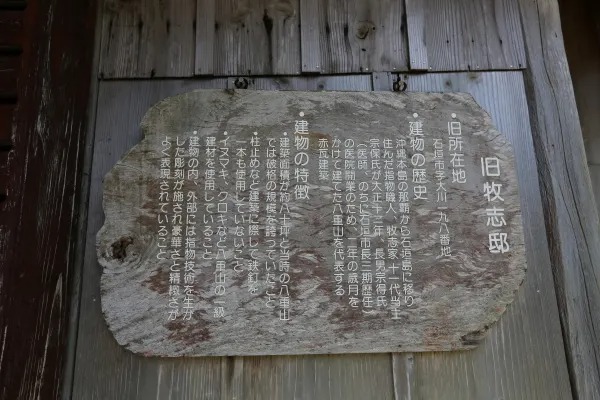 旧牧志邸
・旧所在地
石垣市字大川一九八番地
・建物の歴史
沖縄本島の那覇から石垣島に移り
住んだ指物職人、牧志家十一代当主
宗保氏が大正十二年、長男宗得氏
(医師 のちに石垣市長三期歴任)
の医院開業のため、二年の歳月を
かけて建てた八重山を代表する
赤瓦建築
・建物の特徴
・建築面積が約八十坪と当時の八重山
では破格の規模を誇っていたこと
・柱止めなど建築に際して鉄釘を
一本も使用していないこと
・イヌマキ、クロキなど八重山の一級
建材を使用していること
・建物の内、外部には指物技術を生か
した彫刻が施され豪華さと精緻さが
よく表現されていること